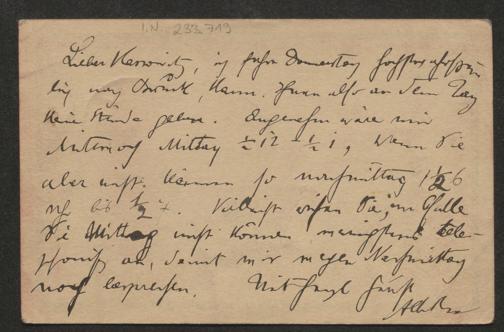 I.N. 233.719
Lieber Herr, ich fahre Donnerstag höchstwahrschein-
lich nach Brünn, kann Ihnen also an dem Tag
keine Stunde geben. Angenehm wäre mir
Mittwoch Mittag ½ 12 - ½ 1, wenn Sie
aber nicht können so nachmittag ½ 6
bis ½ 7. Vielleicht rufen Sie, im Falle
Sie Mittag nicht können mich tele-
phonisch an, damit wir wegen Nachmittag
noch besprechen. Mit Gruß